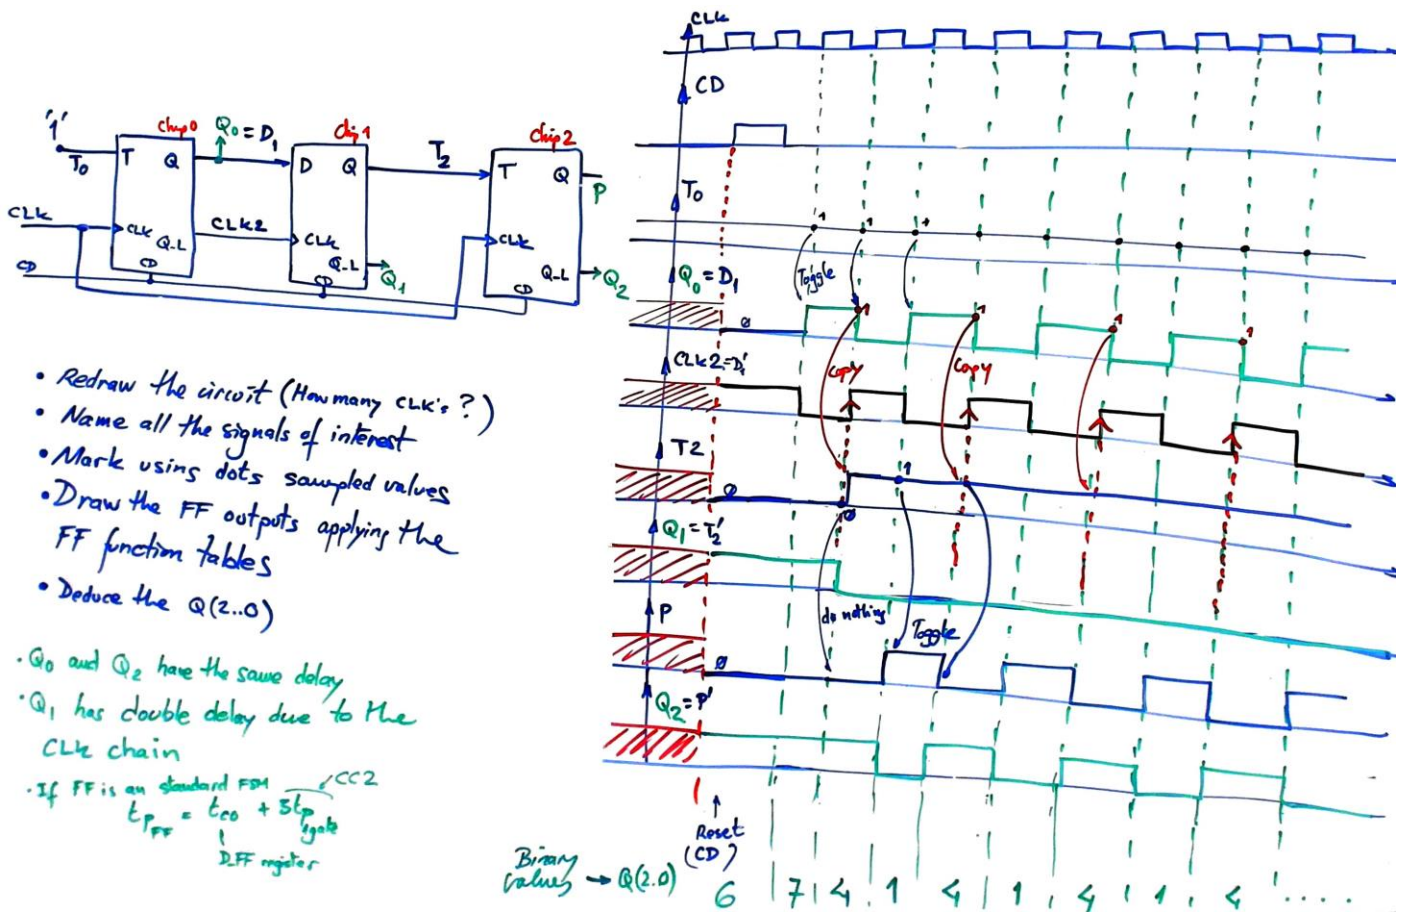 '1'
T0
chip0
Q0 = D1
T Q
CLK
CLK
Q_L
CD
CD
CLK2
Chip1
D Q
CLK
Q_L
CD
Q1
T2
Chip2
T Q
P
CLK
Q_L
CD
Q2
• Redraw the circuit (How many CLK's ?)
• Name all the signals of interest
• Mark using dots sampled values
• Draw the FF outputs applying the
FF function tables
• Deduce the Q(2..0)
• Q0 and Q2 have the same delay
• Q1 has double delay due to the
CLK chain
• If FF is an standard FSM
CC2
tP FF = tco + 3tp gate
D_FF register
CLK
CD
T0
1 1 1
Toggle
Q0 = D1
0
1 1 1 1
CLK2 = D1'
copy
copy
T2
0
0
1
Q1 = T2'
do nothing
Toggle
P
0
Q2 = P'
Reset
(CD)
Binary
values → Q(2.0)
6 | 7 | 4 | 1 | 4 | 1 | 4 | 1 | 4 ' . . . .